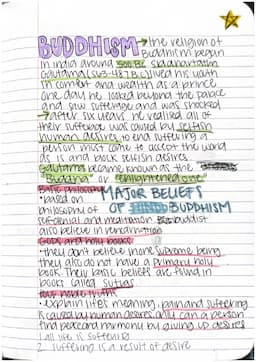 BUDDHISM → the religion of
Buddhism began
in India around 500 BC. Siddhartha
Gautama (563-487 B.C) lived his youth
in comfort and wealth as a prince
One day he looked beyond the palace
and saw sufferage and was shocked
→ after six years he realised all of
their sufferage was caused by selfish
human desires to end suffering a
person must come to accept the world
as is and block selfish desires.
Gautama became known as the
"Buddha" or enlightened one
Basic philosophy
MAJOR BELIEFS
OF BUDDHISM
• based on
philosophy of
self denial and meditation buddist
also believe in reincarnation
Gods and holy books
• they don't believe in one supreme being
they also do not have a primary holy
book. Their basic beliefs are found in
books called sutras
four noble truths
• Explain life's meaning, pain and suffering
is caused by human desires only can a person
find peace and harmony by giving up desires
1. all life is suffering
2. suffering is a result of desire